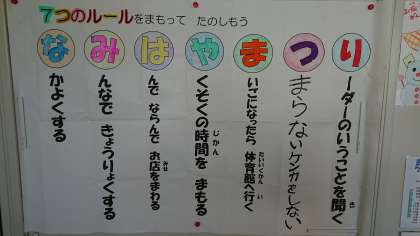 7つのルールをまもって たのしもう
なかよくする
みんなで きょうりょくする
はんで ならんで お店をまわる
みせ
やくそくの時間を まもる
じかん
まいごになったら 体育館へ行く
たいいくかん い
つまらないケンカをしない
リーダーのいうことを聞く
き